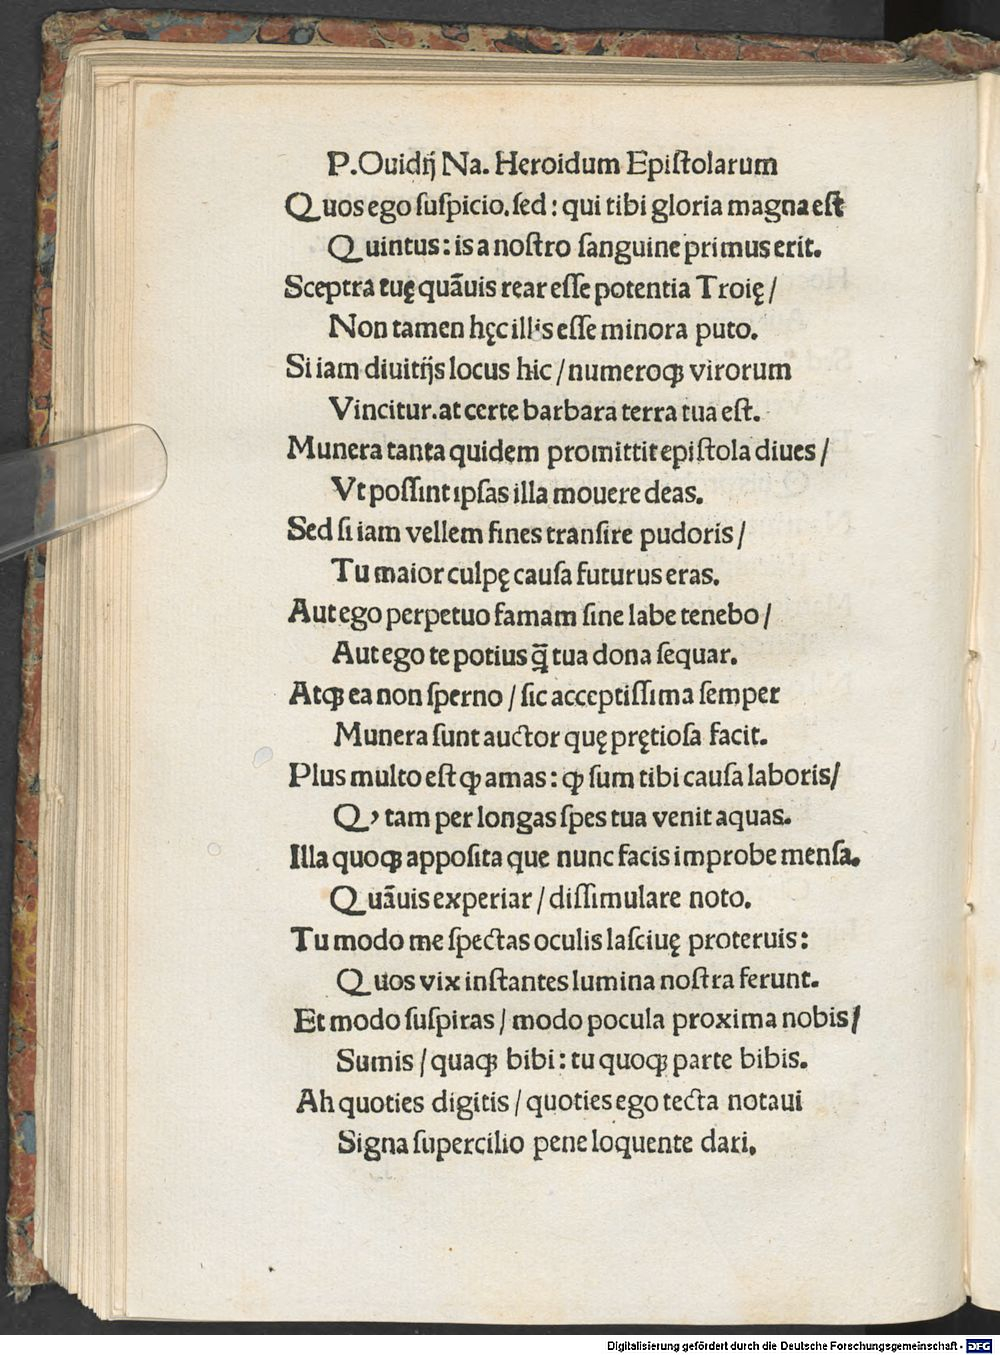 P. Ouidij Na. Heroidum Epiſtolarum
Quos ego ſuſpicio. ſed: qui tibi gloria magna eſt
Quintus: is a noſtro ſanguine primus erit.
Sceptra tuę quãuis rear eſſe potentia Troię /
Non tamen hęc illis eſſe minora puto.
Si iam diuitijs locus hic / numeroqꝫ virorum
Vincitur. at certe barbara terra tua eſt.
Munera tanta quidem promittit epiſtola diues /
Vt poſſint ipſas illa mouere deas.
Sed ſi iam vellem fines tranſire pudoris /
Tu maior culpę cauſa futurus eras.
Aut ego perpetuo famam ſine labe tenebo /
Aut ego te potius q̃ꝫ tua dona ſequar.
Atqꝫ ea non ſperno / ſic acceptiſſima ſemper
Munera ſunt auctor quę prętioſa facit.
Plus multo eſt ꝙ amas: ꝙ ſum tibi cauſa laboris /
Q, tam per longas ſpes tua venit aquas.
Illa quoqꝫ appoſita que nunc facis improbe menſa.
Quãuis experiar / diſſimulare noto.
Tu modo me ſpectas oculis laſciuę proteruis:
Quos vix inſtantes lumina noſtra ferunt.
Et modo ſuſpiras / modo pocula proxima nobis /
Sumis / quaqꝫ bibi: tu quoqꝫ parte bibis.
Ah quoties digitis / quoties ego tecta notaui
Signa ſupercilio pene loquente dari.
Digitalisierung gefördert durch die Deutsche Forschungsgemeinschaft - DFG